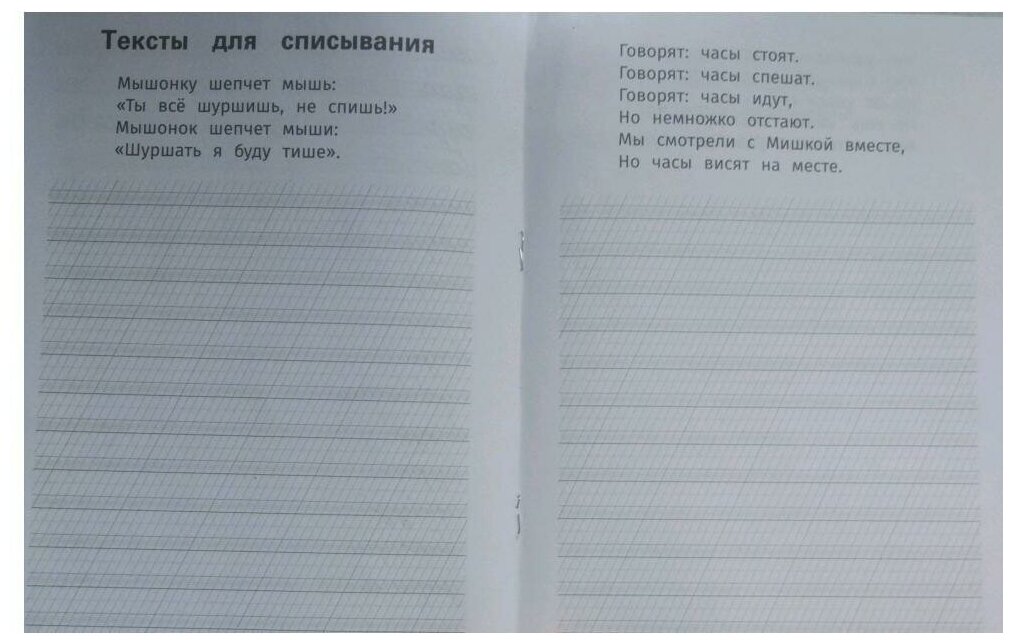 Тексты для списывания
Мышонку шепчет мышь:
«Ты всё шуршишь, не спишь!»
Мышонок шепчет мыши:
«Шуршать я буду тише».
Говорят: часы стоят.
Говорят: часы спешат.
Говорят: часы идут,
Но немножко отстают.
Мы смотрели с Мишкой вместе,
Но часы висят на месте.